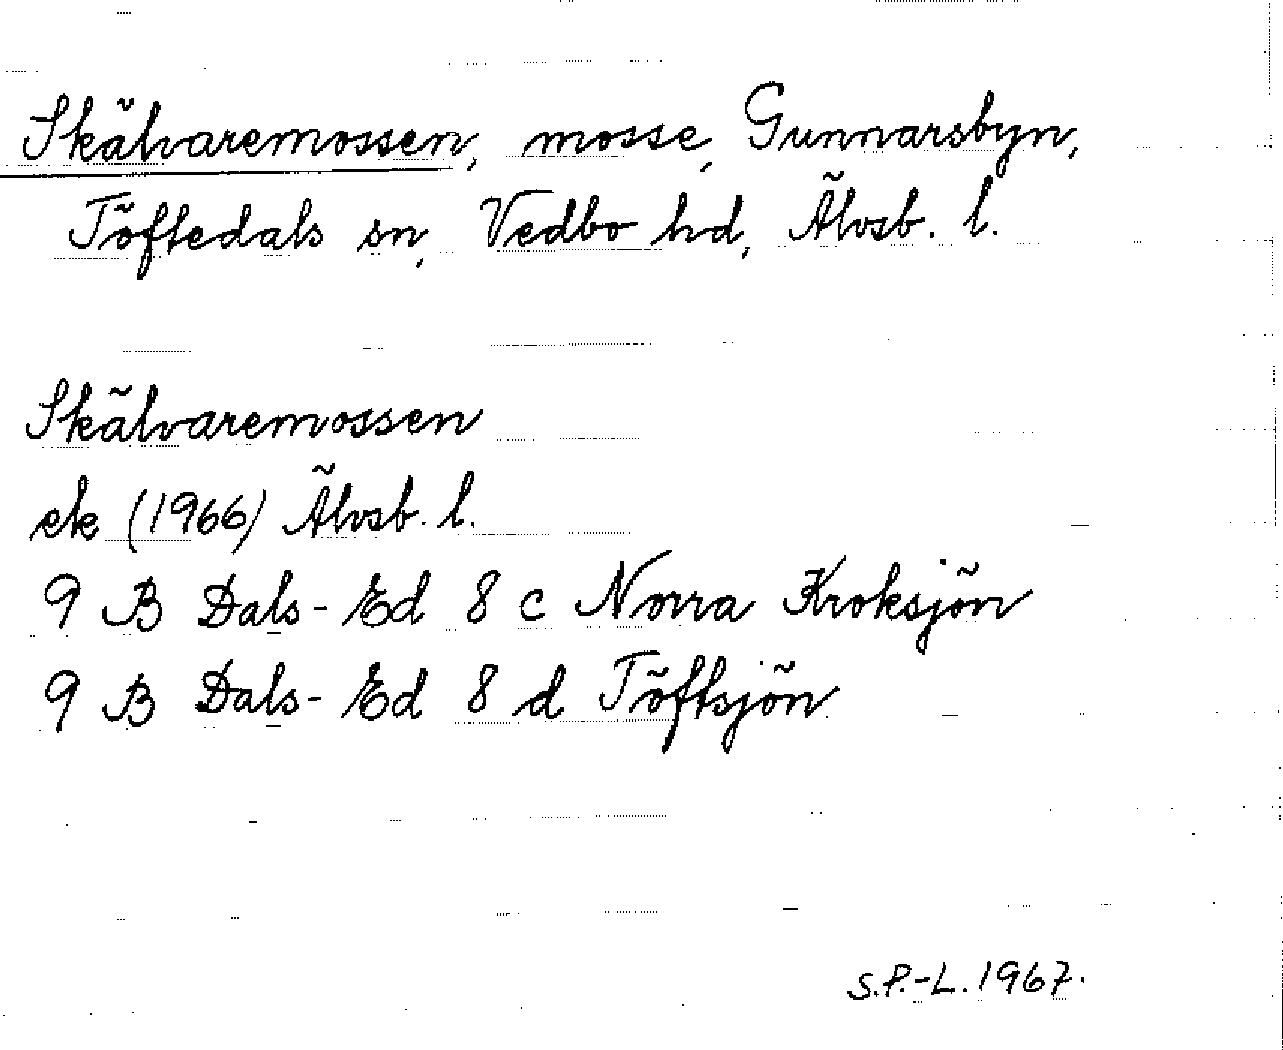 Skälvaremossen, mosse, Gunnarsbyn,
Töftedals sn, Vedbo hd, Älvsb. l.
Skälvaremossen
ek (1966) Älvsb. l.
9 B Dals-Ed 8 c Norra Kroksjön
9 B Dals-Ed 8 d Töftsjön
S.P.-L. 1967.